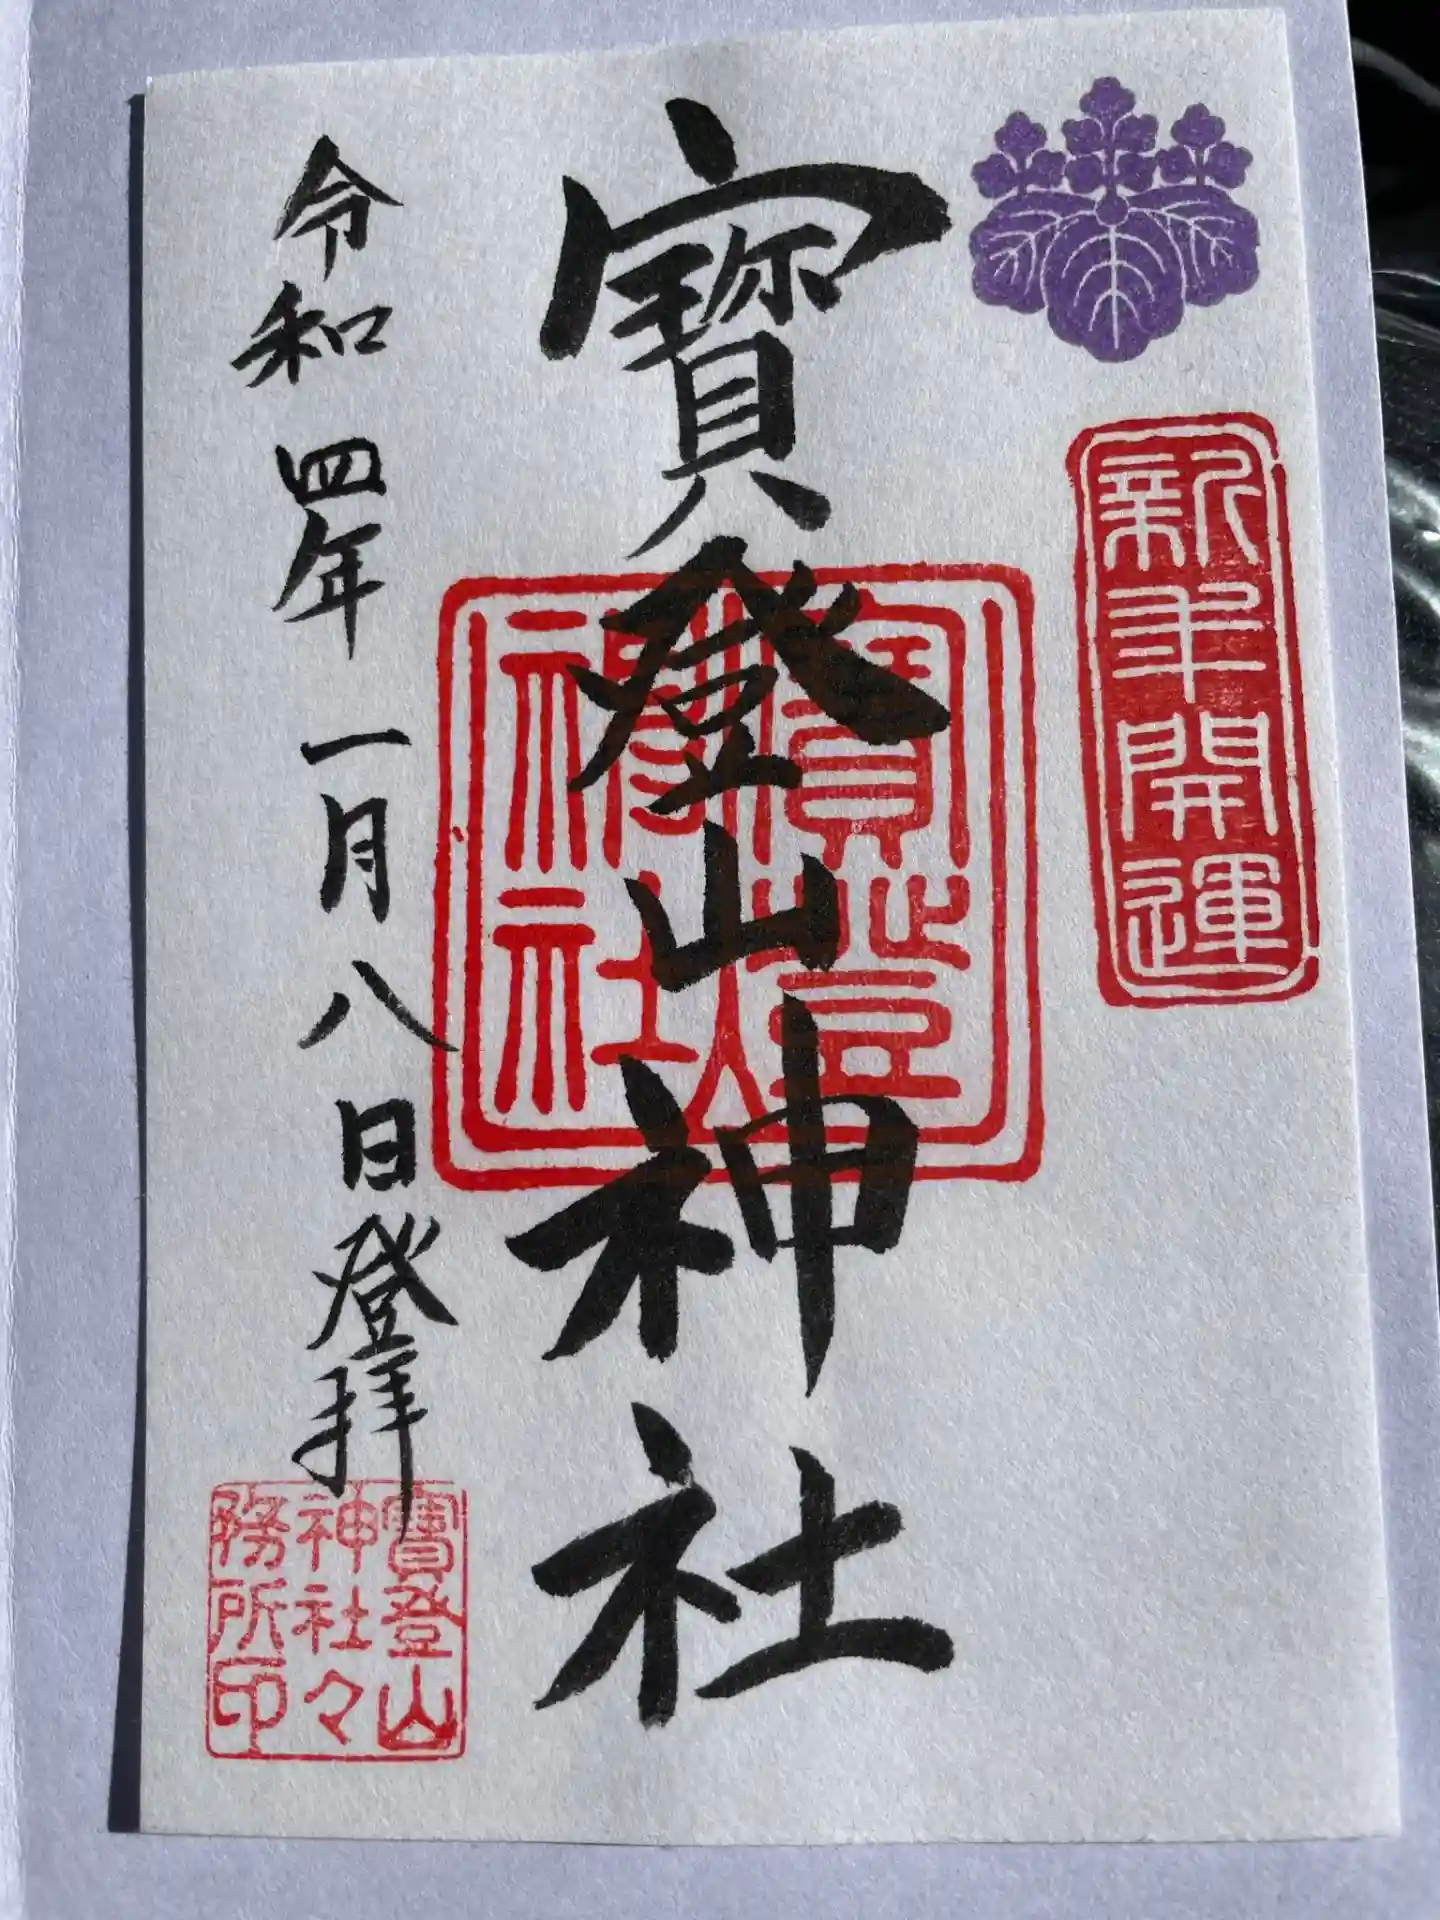 新年開運
寶登山神社
寶登山
神社
令和四年一月八日登拝
寶登山
神社々
務所印